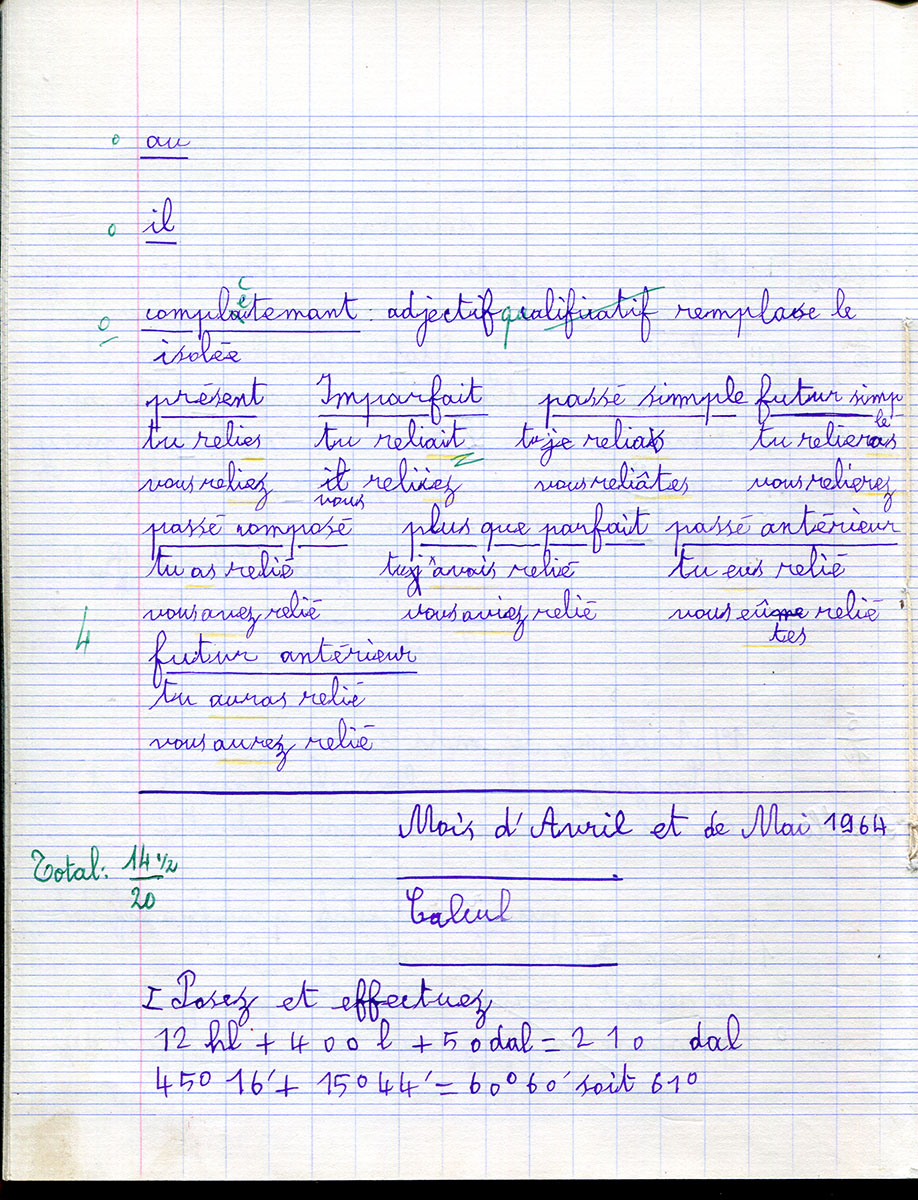 o au
o il
o complètemant : adjectif qualificatif remplase le
isolée
présent Imparfait passé simmple futur simple
tu relies tu reliait tu relias tu relieras
vous reliez vous reliiez vous reliâtes vous relierez
passé composé plus que parfait passé antérieur
tu as relié tu avais relié tu eus relié
vous avez relié vous aviez relié vous eûtes relié
4
futur antérieur
tu auras relié
vous aurez relié
Mois d'Avril et de Mai 1964
Total: 14 1/2
20
Calcul
I Posez et effectuez
12 hl + 400 l + 50 dal = 210 dal
45° 16' + 15° 44' = 60° 60' soit 61°